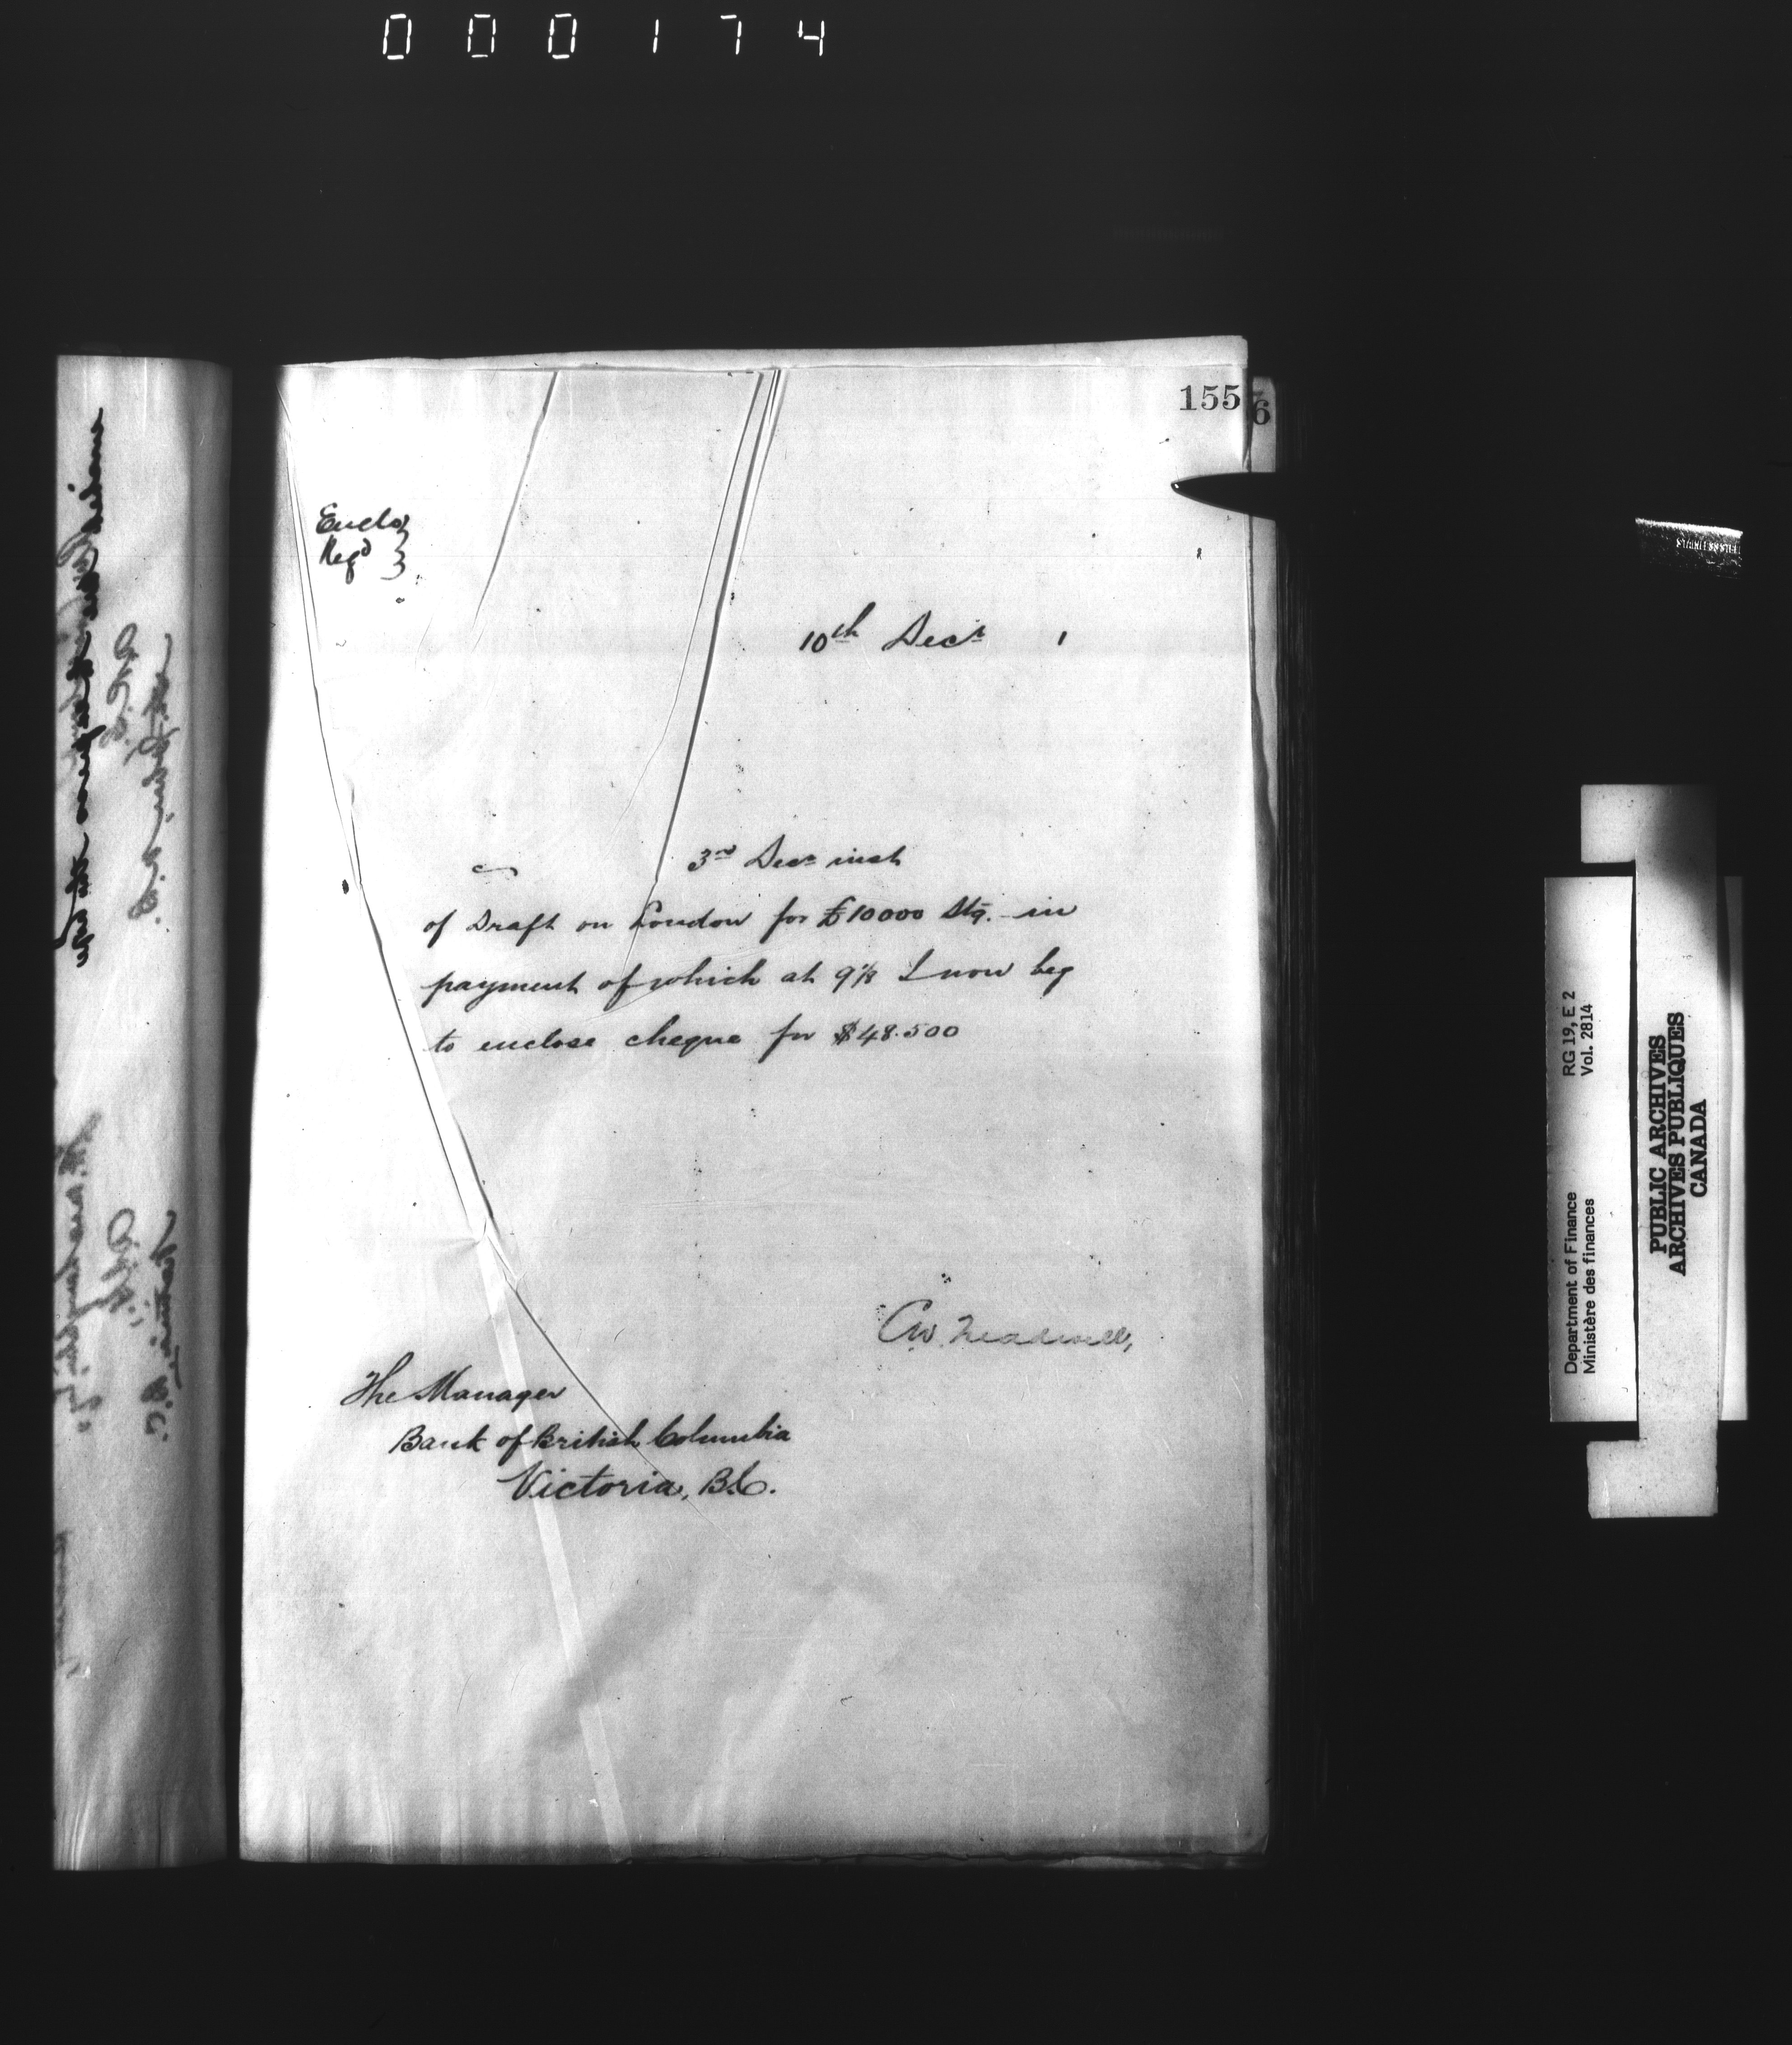 000174
155
6
Enclo
Regd
10th Decr 1
3rd Decr inst
of Draft on London for £10000 Stg. in
payment of which at 9 1/8 I now beg
to enclose cheque for $48.500
C.W. Treadwell,
The Manager
Bank of British Columbia
Victoria, B.C.
Department of Finance RG 19, E 2
Ministère des finances Vol. 2814
PUBLIC ARCHIVES
ARCHIVES PUBLIQUES
CANADA